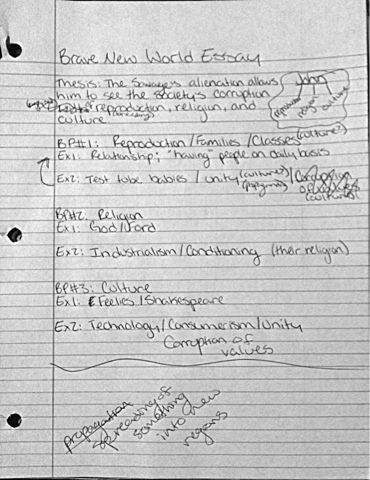 Brave New World Essay
Thesis: The Savage's alienation allows
him to see the society's corruption
reproduction, religion, and
culture
John
reproduction religion culture
BP#1: Reproduction/Families/Classes (culture?)
Ex1: Relationship; "having" people on daily basis
Ex2: Test tube babies / unity (culture?) / Corruption
of values
(culture)
BP#2: Religion
Ex1: God/Ford
Ex2: Industrialism/Conditioning (their religion)
BP#3: Culture
Ex1: Feelies/Shakespeare
Ex2: Technology/Consumerism/Unity
Corruption of
values
propagation
spreading of
something
into new
regions